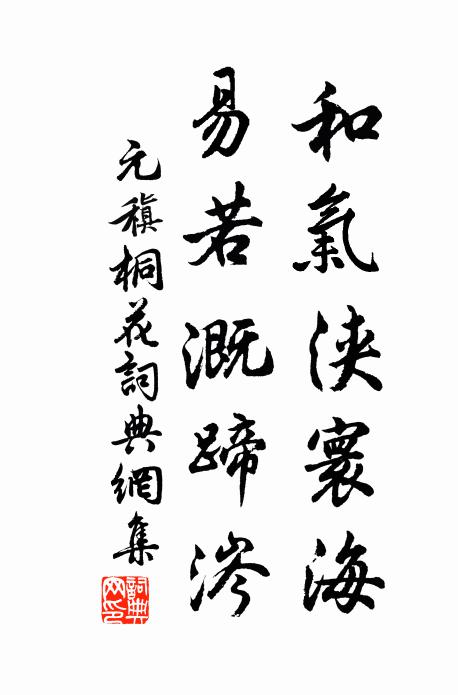 和氣浹寰海
易若溉蹄涔
元稹桐花詞典網集
詞典網印